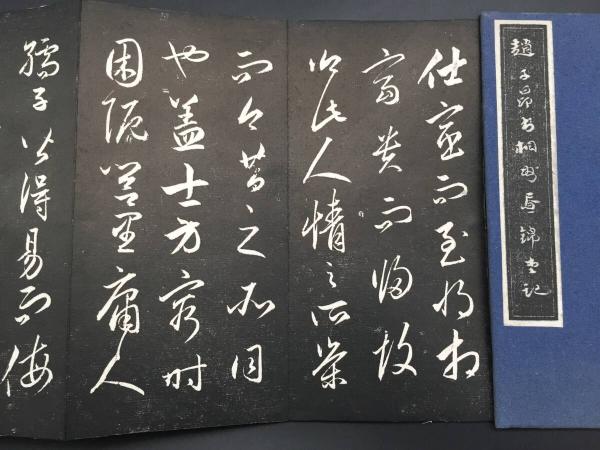 趙子昂書相州晝錦堂記
仕宦而至將相
富貴而歸故
鄉此人情之所榮
而今昔之所同
也蓋士方窮時
困阨閭里庸人
孺子皆得易而侮